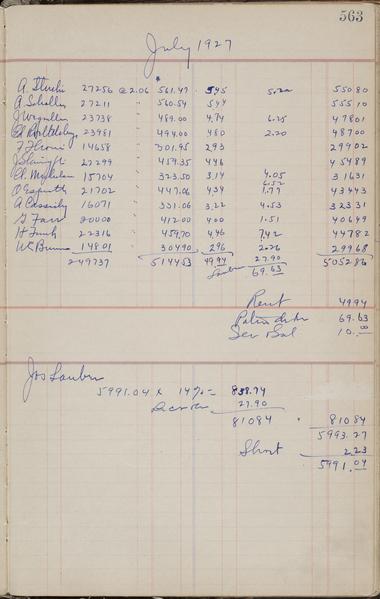 563
July 1927
A. Stucki 27256 @ 2.06 561.47 5.45 5.22 550 80
A. Schaller 27211 " 560.54 5 44 555 10
J Wagnller 23738 " 489.00 4.74 6.25 478 01
23981 " 494.00 4 80 2.20 487 00
14658 " 301.95 2 93 299 02
22299 " 459.35 4 46 454 89
15704 " 323.50 3.14 4.05 316 31
21702 " 447.06 4 34 6.52 1.77 434 43
A Cassidy 16071 " 331.06 3.22 4.53 323 31
G Farr 20000 " 412 00 4 00 1.51 406 49
H Funk 22316 " 459.70 4.46 7.42 447 82
14801 " 304 90 2 96 2.26 299 68
249737 5144 53 49 94 27.90 5052 86
Lauber 69.63
Rent 49 94
69. 63
Ser Bal 10. 00
Jos Lauber
5991.04 x 14% = 838.74
27.90
810 84 810 84
5993.27
Short 2.23
5991.04